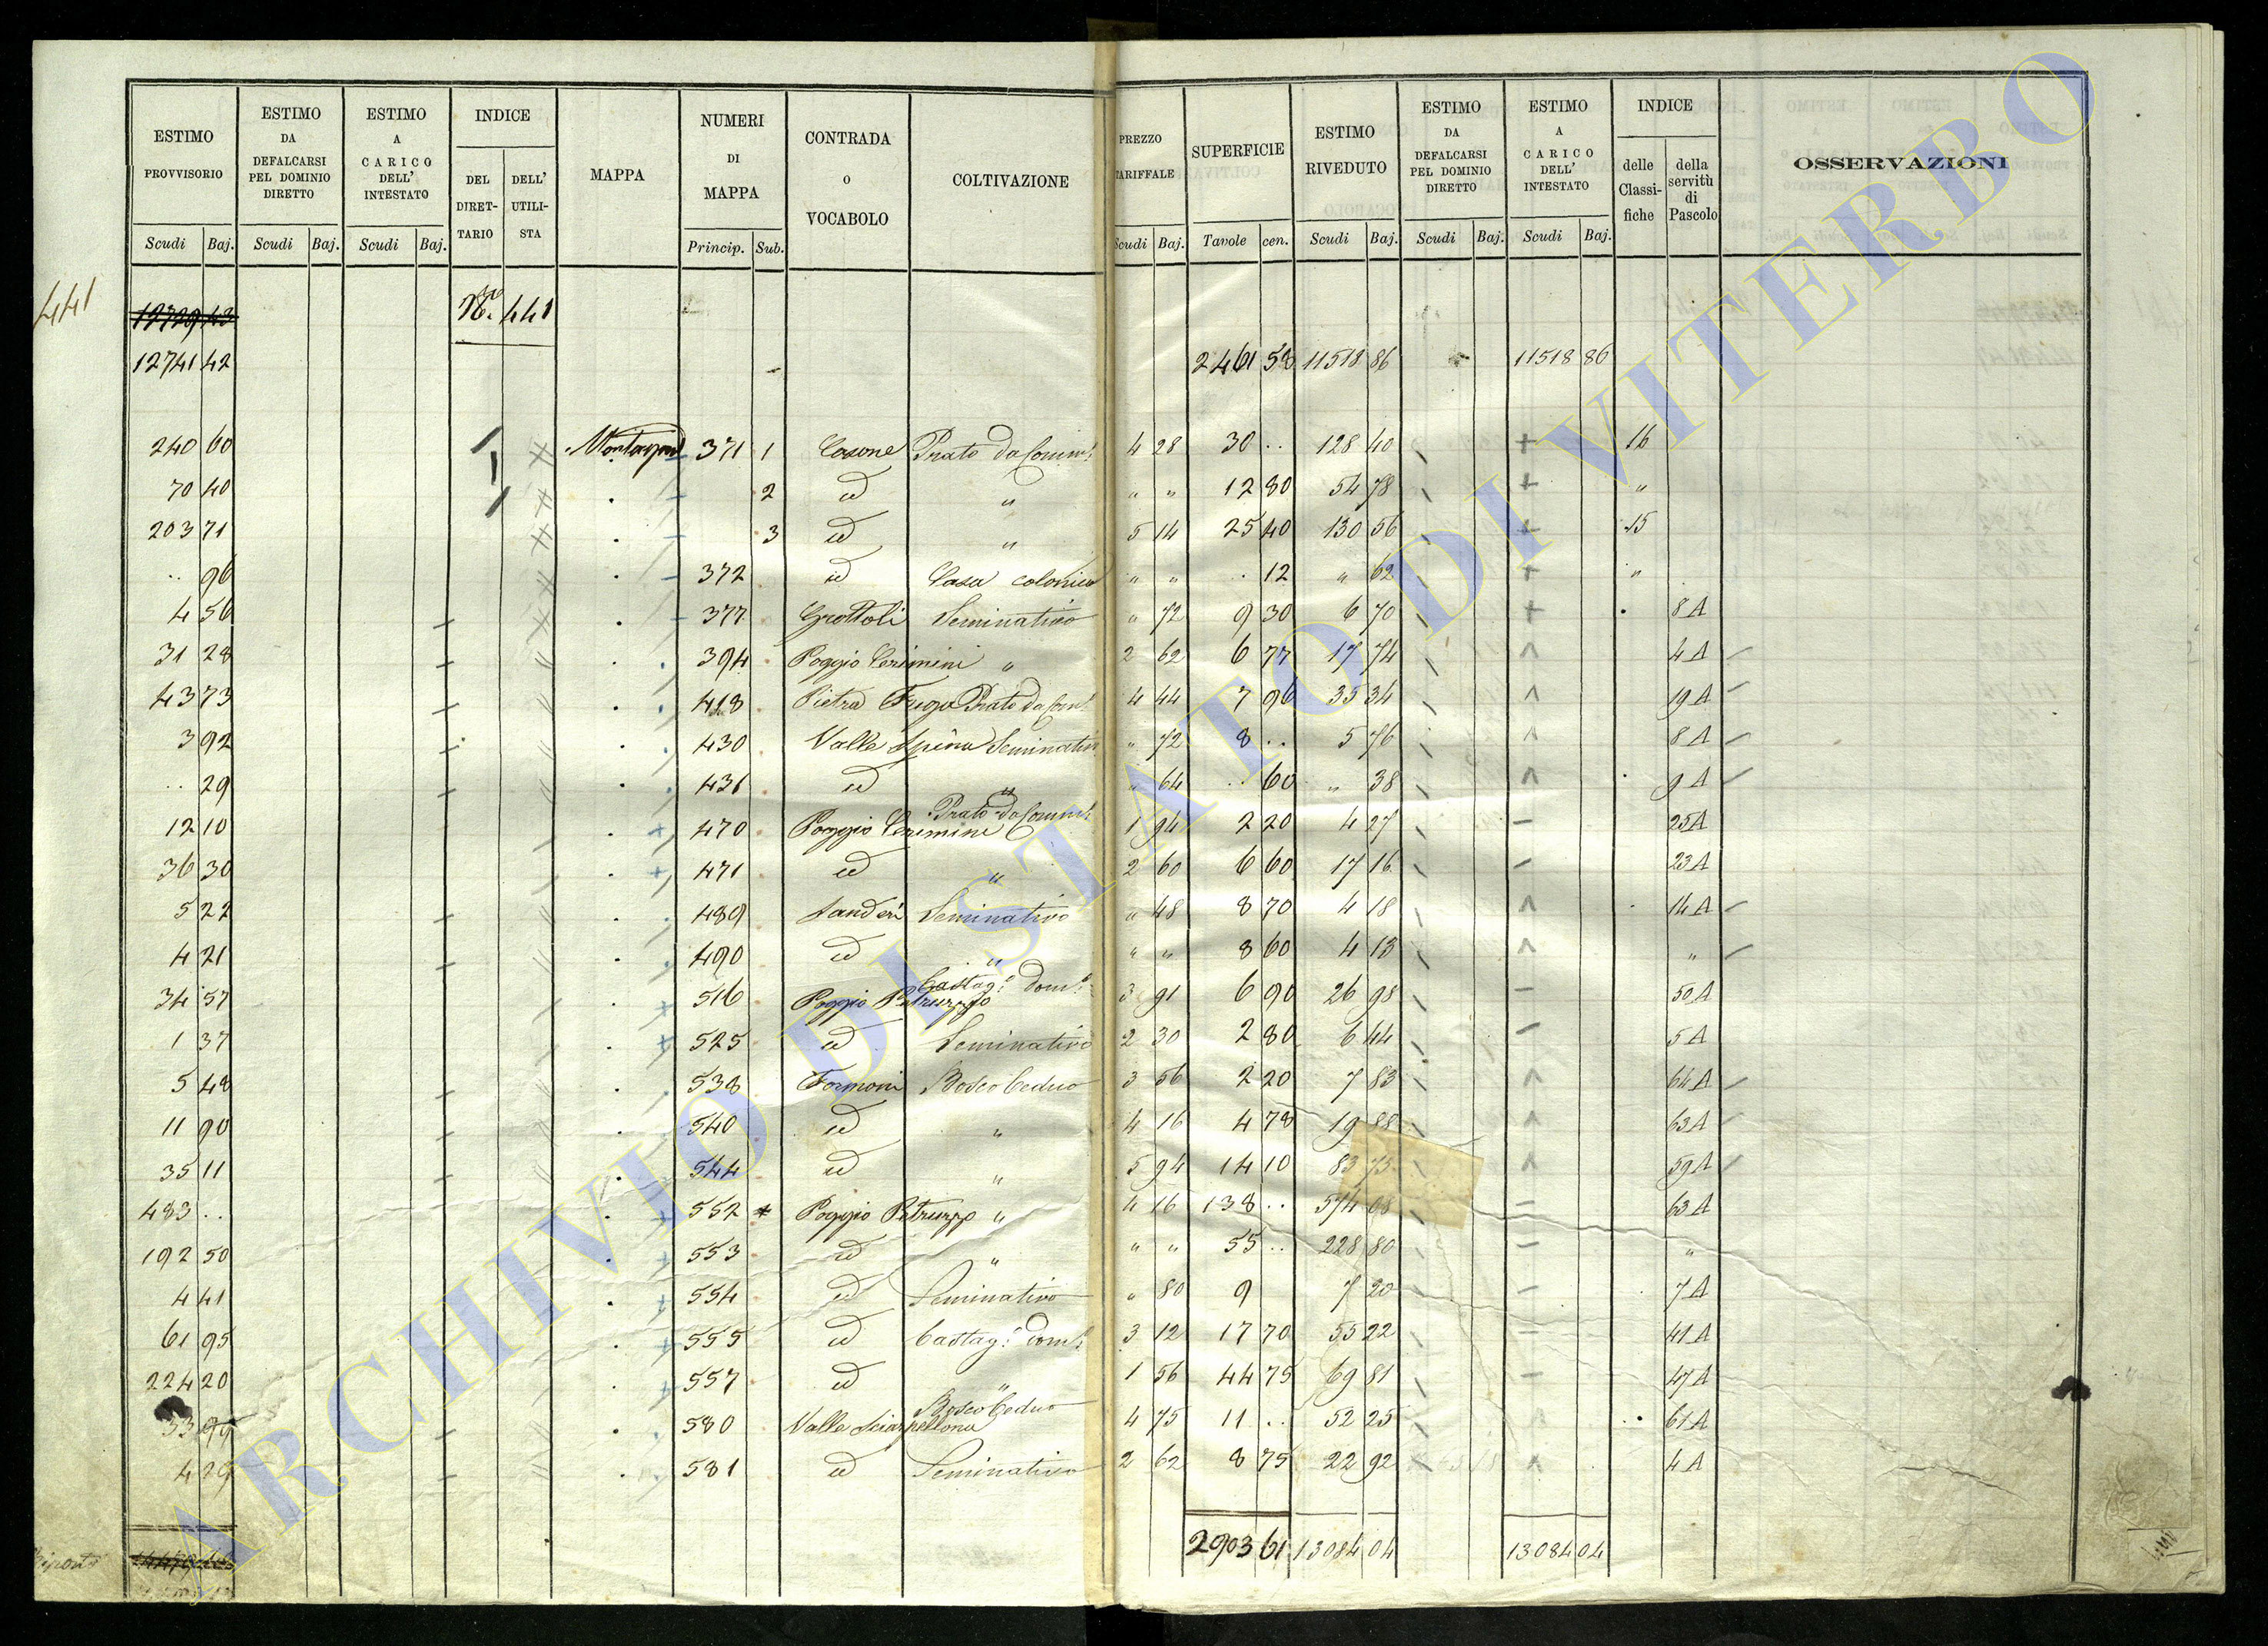 ESTIMO PROVVISORIO ESTIMO DA DEFALCARSI PEL DOMINIO DIRETTO ESTIMO A CARICO DELL' INTESTATO INDICE DEL DIRETTARIO DELL' UTILISTA MAPPA NUMERI DI MAPPA CONTRADA O VOCABOLO COLTIVAZIONE PREZZO TARIFFALE SUPERFICIE ESTIMO RIVEDUTO ESTIMO DA DEFALCARSI PEL DOMINIO DIRETTO ESTIMO A CARICO DELL' INTESTATO INDICE delle Classifiche della servitù di Pascolo OSSERVAZIONI
Scudi Baj. Scudi Baj. Scudi Baj. Princip. Sub. Scudi Baj. Tavole cen. Scudi Baj. Scudi Baj. Scudi Baj.
441
12729 43 No. 441
12741 42 2461 58 11518 86 11518 86
240 60 371 1 Casone Prato da 4 28 30 .. 128 40 + 16
70 40 2 id " " " 12 80 54 78 + "
203 71 3 id " 5 14 25 40 130 56 + 15
.. 96 372 id Casa colonica " " . 12 " 62 + "
4 56 377 Grottoli Seminativo " 72 9 30 6 70 + 8 A
31 28 394 Poggio Cerimini " 2 62 6 77 17 74 4 A
43 73 418 Pietra Prato da 4 44 7 96 35 34 19 A
3 92 430 Valle Spina Seminativo " 72 8 .. 5 76 8 A
.. 29 431 id " " 64 .. 60 " 38 9 A
12 10 470 Poggio Cerimini Prato da 1 94 2 20 4 27 25 A
36 30 471 id " 2 60 6 60 17 16 23 A
5 22 489 Sanderi Seminativo " 48 8 70 4 18 14 A
4 21 490 id " " " 8 60 4 13 "
34 57 516 Poggio Petruzzo Castag. Dom. 3 91 6 90 26 98 50 A
1 37 525 id Seminativo 2 30 2 80 6 44 5 A
5 48 538 Formoni Bosco Ceduo 3 56 2 20 7 83 64 A
11 90 540 id " 4 16 4 78 19 88 63 A
35 11 544 id " 5 94 14 10 83 75 59 A
483 .. 552 Poggio Petruzzo " 4 16 138 .. 574 08 63 A
192 50 553 id " " " 55 .. 228 80 "
4 41 554 id Seminativo " 80 9 7 20 7 A
61 95 555 id Castag. Dom. 3 12 17 70 55 22 41 A
224 20 557 id " 1 56 44 75 69 81 47 A
33 99 580 Valle Sciarpellona Bosco Ceduo 4 75 11 .. 52 25 61 A
4 29 581 id Seminativo 2 62 8 75 22 92 4 A
2903 61 13084 04 13084 04
ARCHIVIO DI STATO DI VITERBO